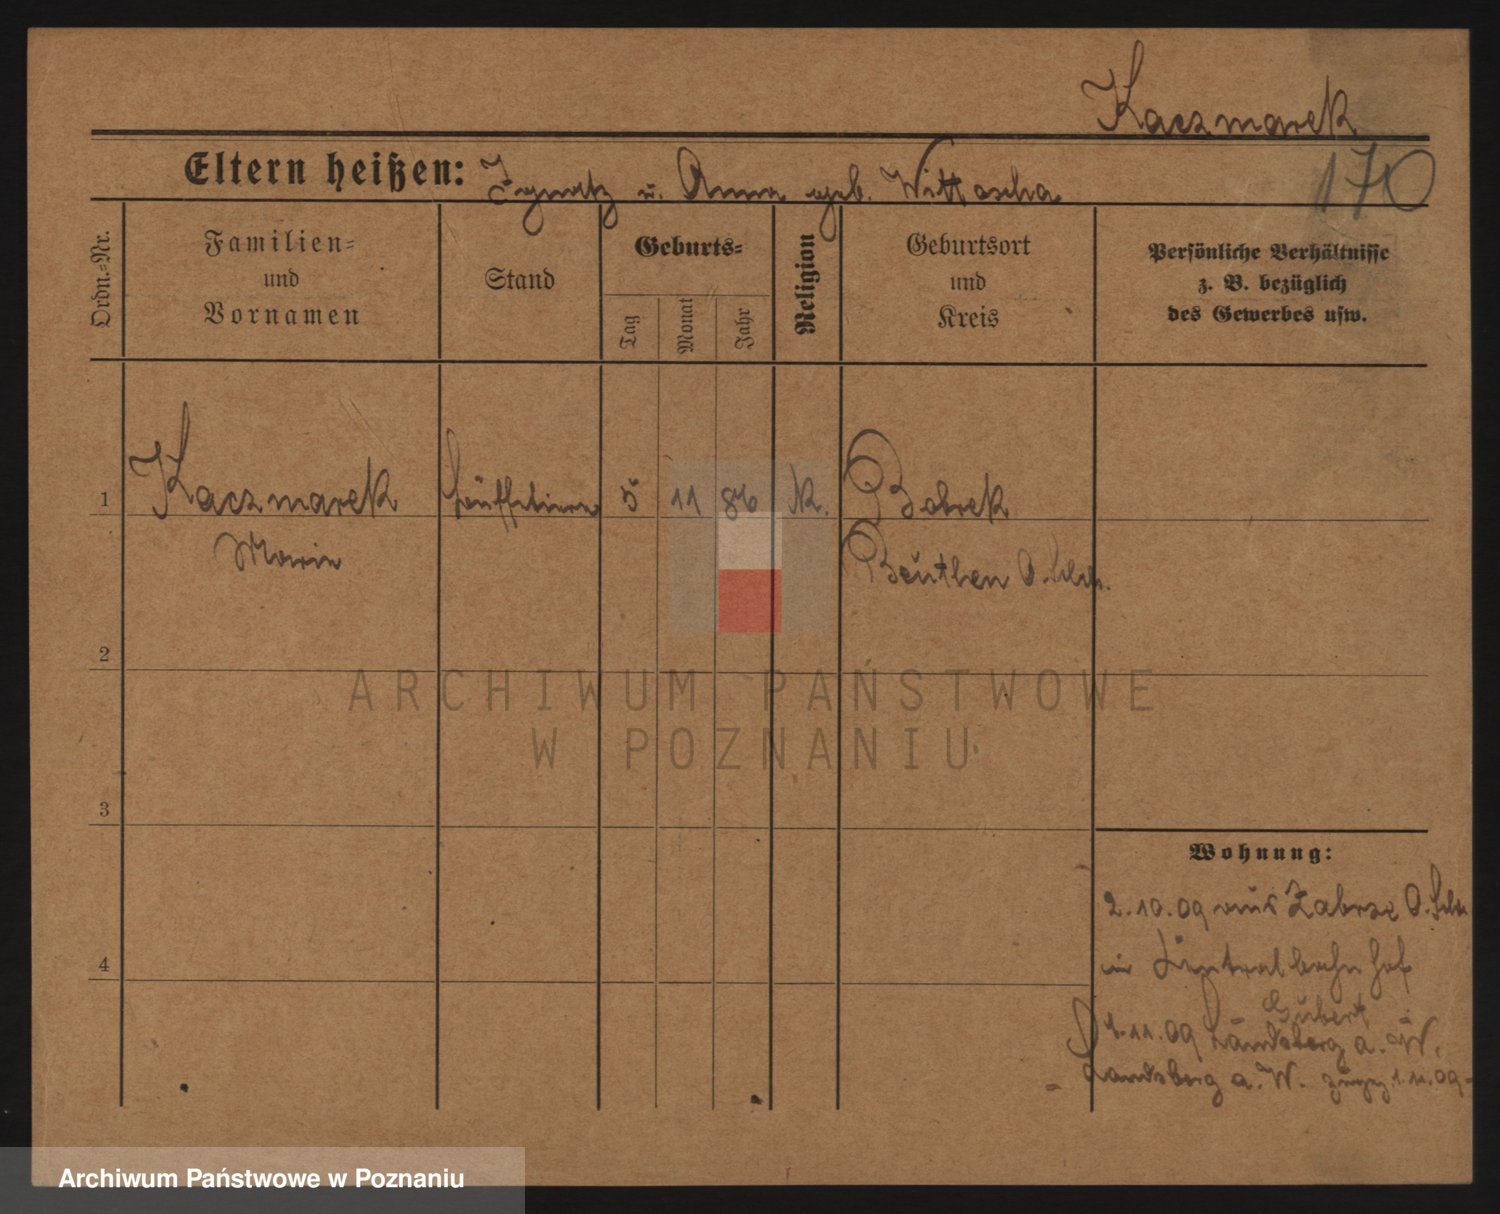 Kaczmarek
Eltern heißen: Ignatz u. Anna geb. Wittoscha
170
Ordn.=Nr.
Familien=
und
Vornamen
Stand
Geburts=
Tag
Monat
Jahr
Religion
Geburtsort
und
Kreis
Persönliche Verhältnisse
z. B. bezüglich
des Gewerbes usw.
1 Kaczmarek Büffetiere 5 11 86 K. Bobrek
Marie Beuthen O. Schl.
2
ARCHIWUM PAŃSTWOWE
W POZNANIU
3
Wohnung:
2.10.09 aus Zabrze O. Schl.
4
Zentralbahnhof
1.11.09 Landsberg a. W.
Landsberg a. W. 1.11.09
Archiwum Państwowe w Poznaniu